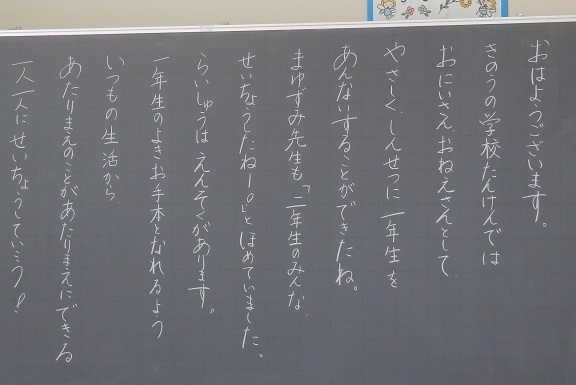 おはようございます。
きのうの学校たんけんでは
おにいさん、おねえさんとして
やさしく、しんせつに一年生を
あんないすることができたね。
まゆずみ先生も「二年生のみんな
せいちょうしたねー。」とほめていました。
らいしゅうはえんそくがあります。
一年生のよきお手本となれるよう
いつもの生活から
あたりまえのことがあたりまえにできる
一人一人にせいちょうしていこう!